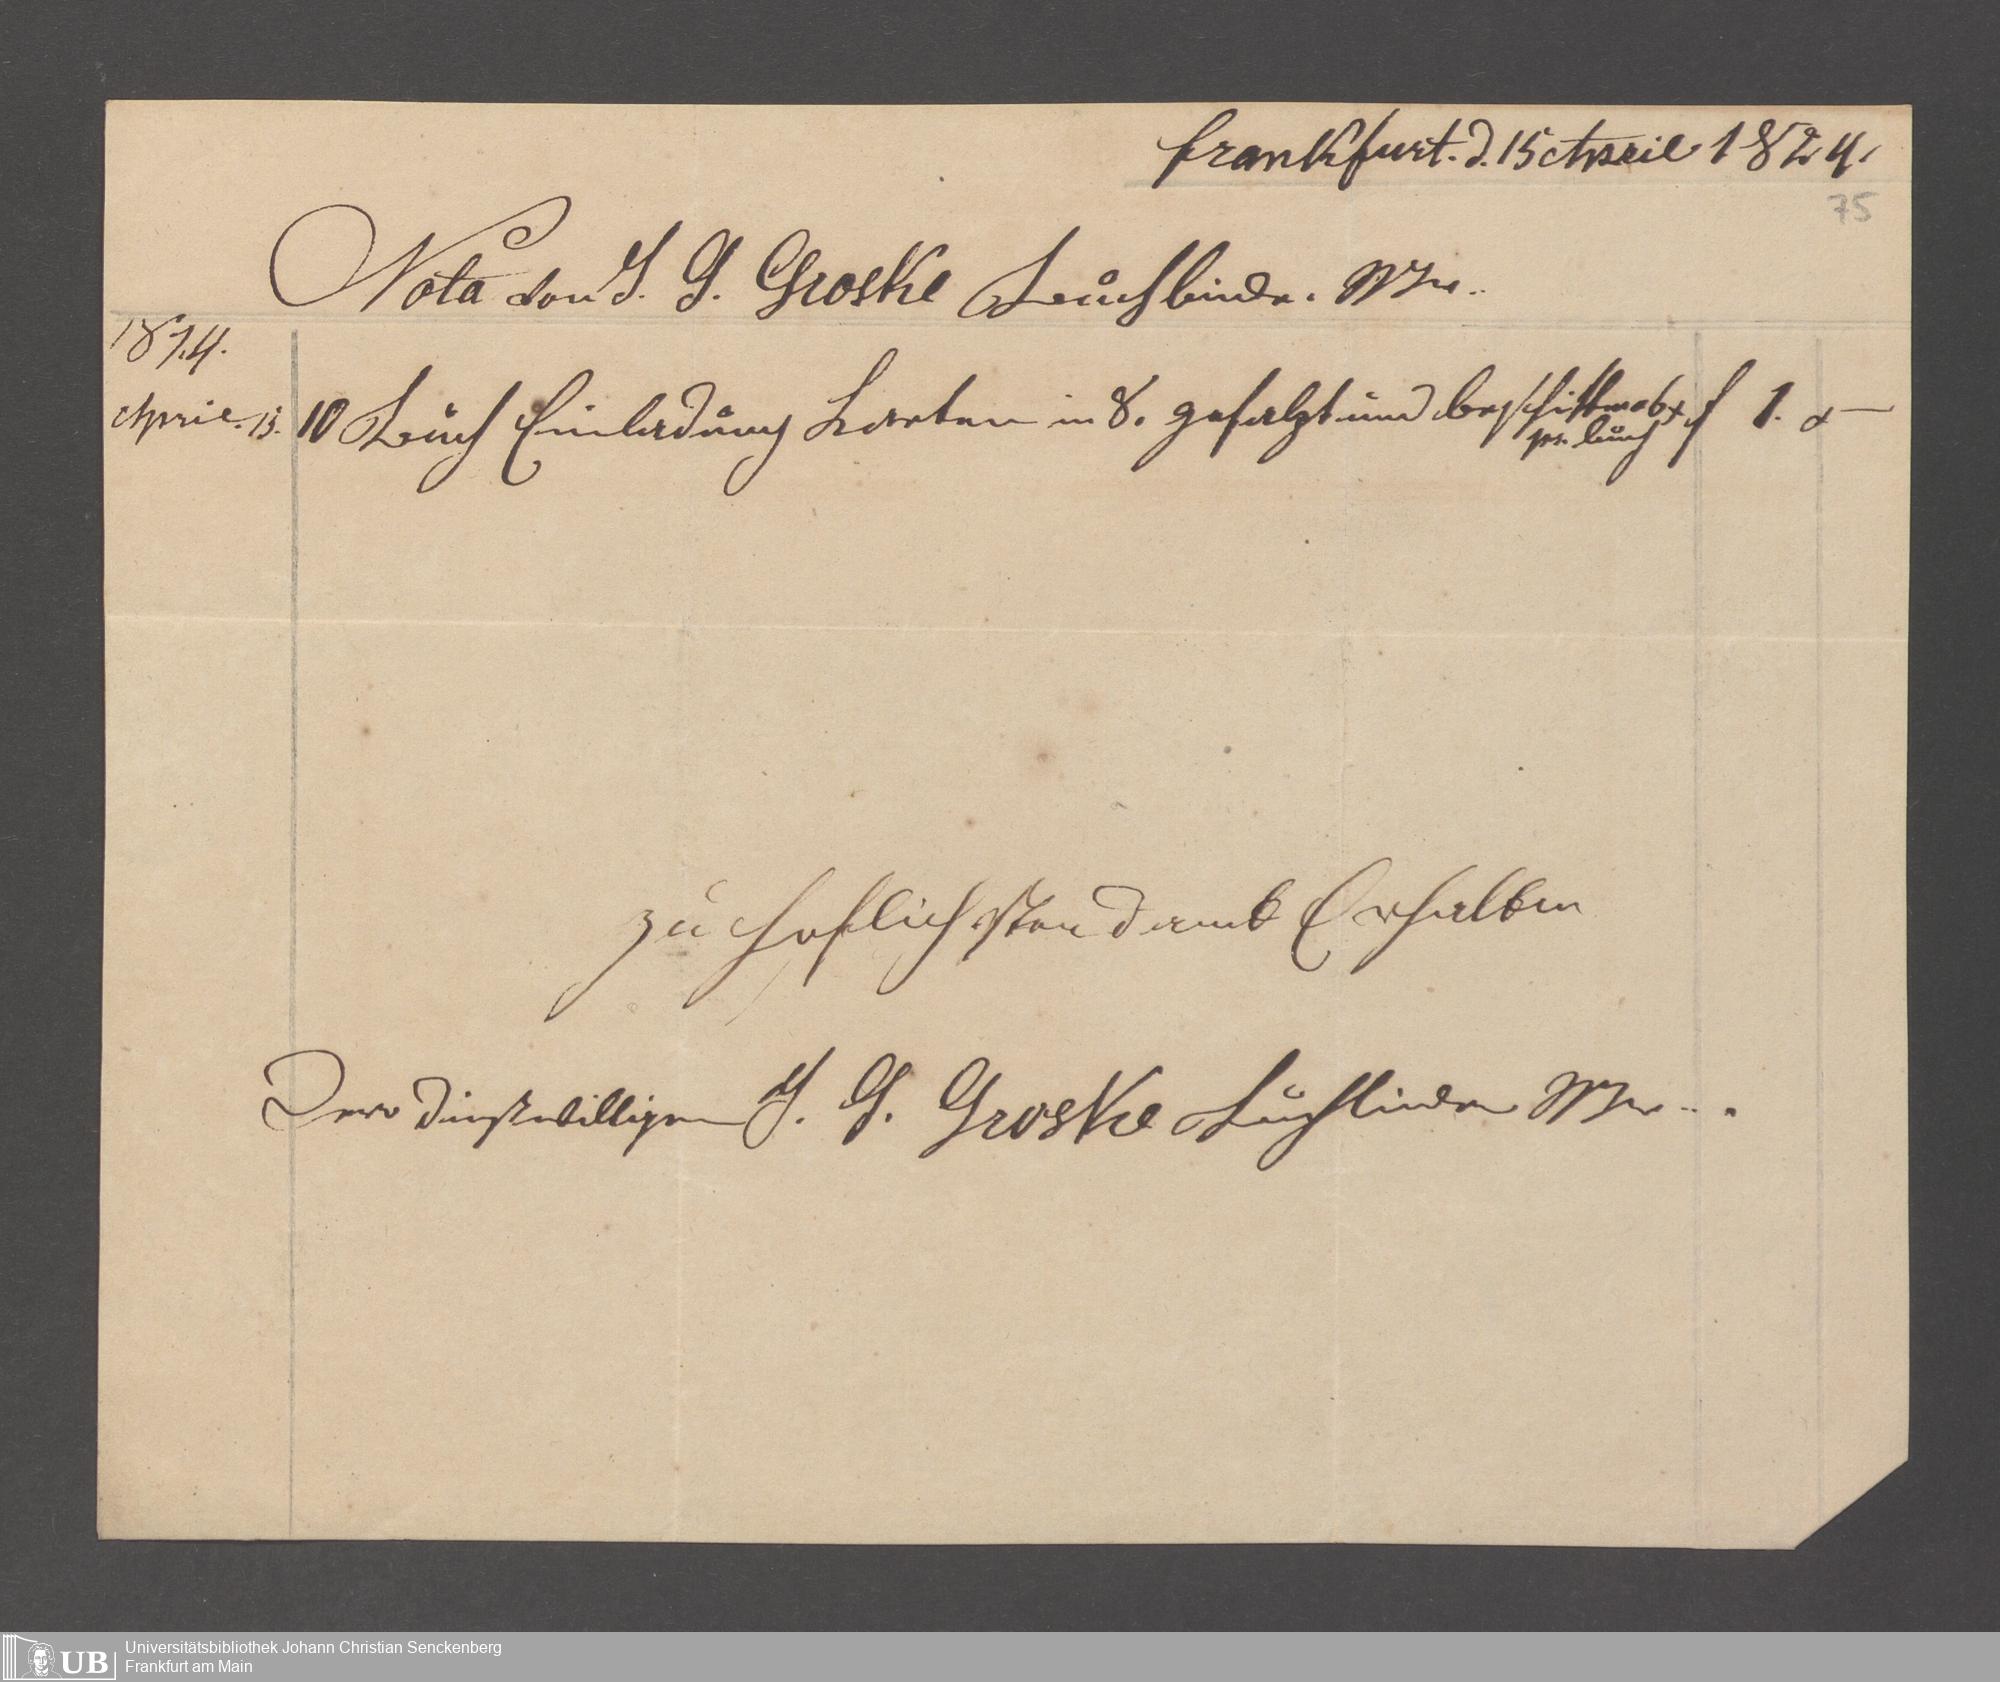 Frankfurt. d. 15 Aprill 1824.
75
Nota von J. G. Groske Buchbinder. Mstr..
1824.
April. 15. 10 Buch Einladung Karten in 8. gefalzt und beschitten a 6 x f 1. x —
pr. buch
zu höflichsten danck Erhalten
Dero dienstwilligen J. G. Groske Buchbinder Mstr...
UB
Universitätsbibliothek Johann Christian Senckenberg
Frankfurt am Main